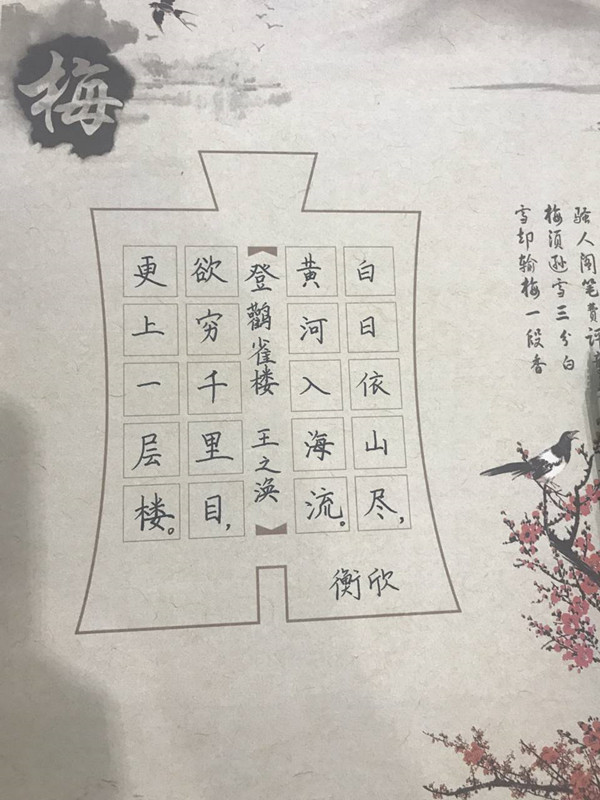 梅
骚人阁笔費评
梅须逊雪三分白
雪却输梅一段香
白日依山尽，
黄河入海流。
登鸛雀楼 王之涣
欲穷千里目，
更上一层楼。
衡欣